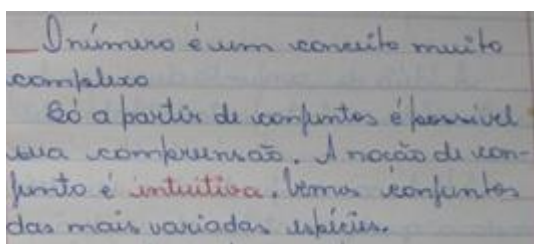 O número é um conceito muito
complexo
Só a partir de conjuntos é possível
sua compreensão. A noção de con-
junto é intuitiva. Vemos conjuntos
das mais variadas espécies.